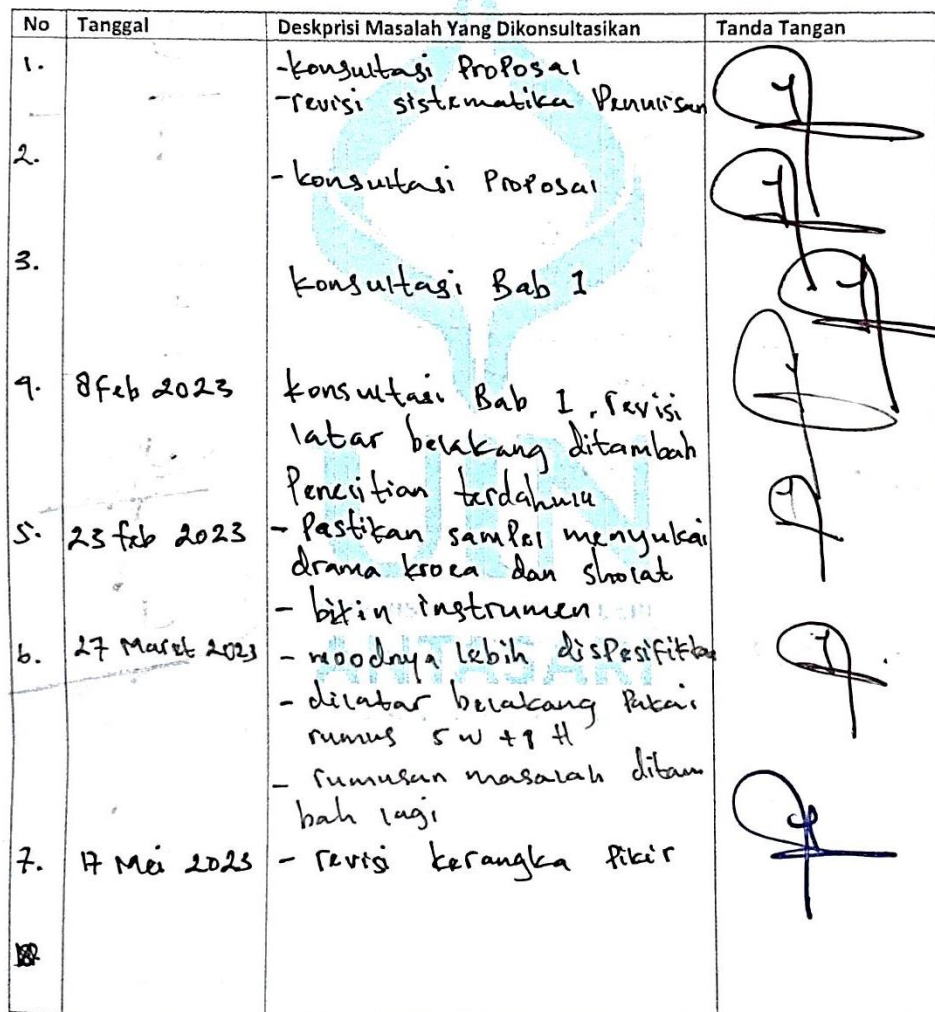 No Tanggal Deskprisi Masalah Yang Dikonsultasikan Tanda Tangan
1. -konsultasi Proposal
-revisi sistematika Penulisan
2. - konsultasi Proposal
3. konsultasi Bab 1
4. 8 Feb 2023 konsultasi Bab 1, revisi
latar belakang ditambah
Penelitian terdahulu
5. 23 feb 2023 - Pastikan sampel menyukai
drama kroea dan sholat
- bikin instrumen
6. 27 Maret 2023 - moodnya lebih dispesifikkan
- dilatar belakang Pakai
rumus 5 w + 1 H
- rumusan masalah ditam
bah lagi
7. 17 Mei 2023 - revisi kerangka Pikir
UIN
ANTASARI